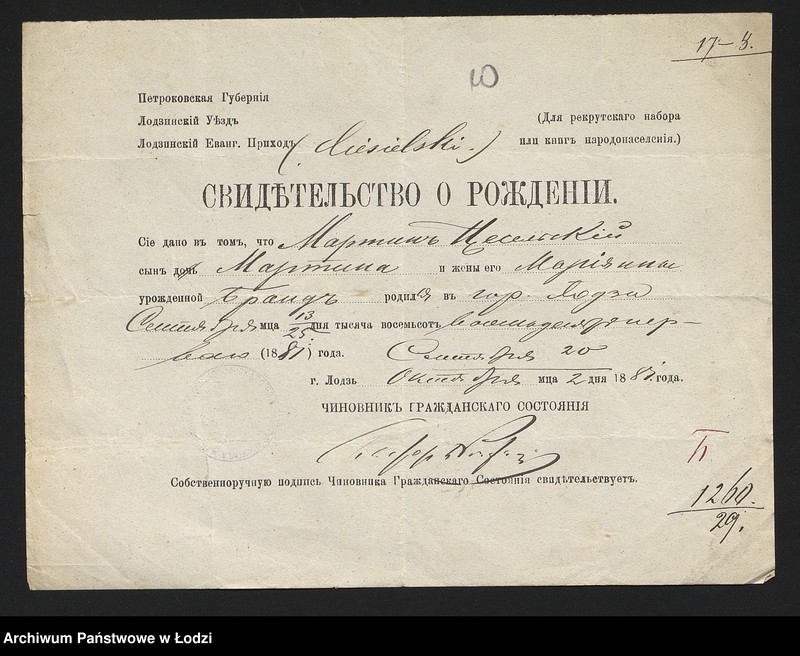 17-8.
10
Петроковская Губернія
Лодзинскій Уѣздъ
Лодзинскій Еванг. Приходъ
(Ciesielski.)
(Для рекрутскаго набора
или книгъ народонаселенія.)
СВИДѢТЕЛЬСТВО О РОЖДЕНІИ.
Сіе дано въ томъ, что Мартинъ Цесельскій
сынъ дочь Мартина и жены его Маріянны
урожденной Брандъ родился въ гор. Лодзи
Сентября 13/25 мца дня тысяча восемьсотъ восемьдесятъ пер-
ваго (1881) года. Сентября 20
г. Лодзь Октября мца 2 дня 1881 года.
ЧИНОВНИКЪ ГРАЖДАНСКАГО СОСТОЯНІЯ
Собственноручную подпись Чиновника Гражданскаго Состоянія свидѣтельствуетъ.
II
1260.
29.
Archiwum Państwowe w Łodzi